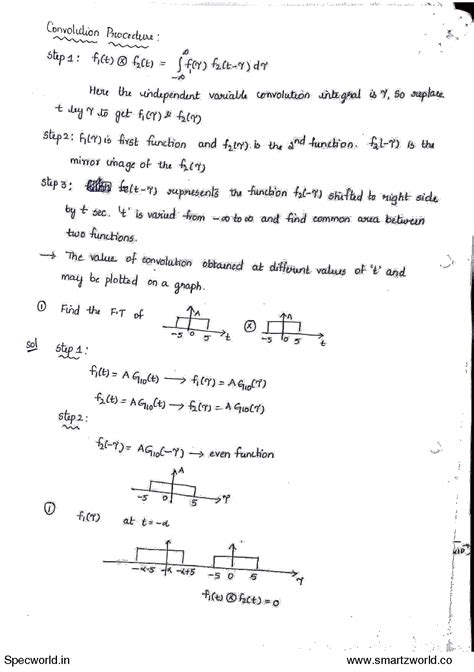 Convolution Procedure:
Step 1: f₁(t) ⊗ f₂(t) = ∫ f₁(γ) f₂(t-γ) dγ
-∞ ∞
Here the independent variable convolution integral is γ, so replace
t by γ to get f₁(γ) & f₂(γ)
Step 2: f₁(γ) is first function and f₂(γ) is the 2nd function. f₂(-γ) is the
mirror image of the f₂(γ)
Step 3: f₂(t-γ) represents the function f₂(-γ) shifted to right side
by t sec. 't' is varied from -∞ to ∞ and find common area between
two functions.
→ The value of convolution obtained at different values of 't' and
may be plotted on a graph.
① Find the F.T of
A -5 0 5 t ⊗ A -5 0 5 t
Sol Step 1:
f₁(t) = A G₁₀(t) → f₁(γ) = A G₁₀(γ)
f₂(t) = A G₁₀(t) → f₂(γ) = A G₁₀(γ)
Step 2:
f₂(-γ) = A G₁₀(-γ) → even function
A
-5 0 5 γ
ⓘ f₁(γ) at t=-α
-α-5 -α -α+5 -5 0 5 γ
f₁(t) ⊗ f₂(t) = 0
Specworld.in www.smartzworld.co